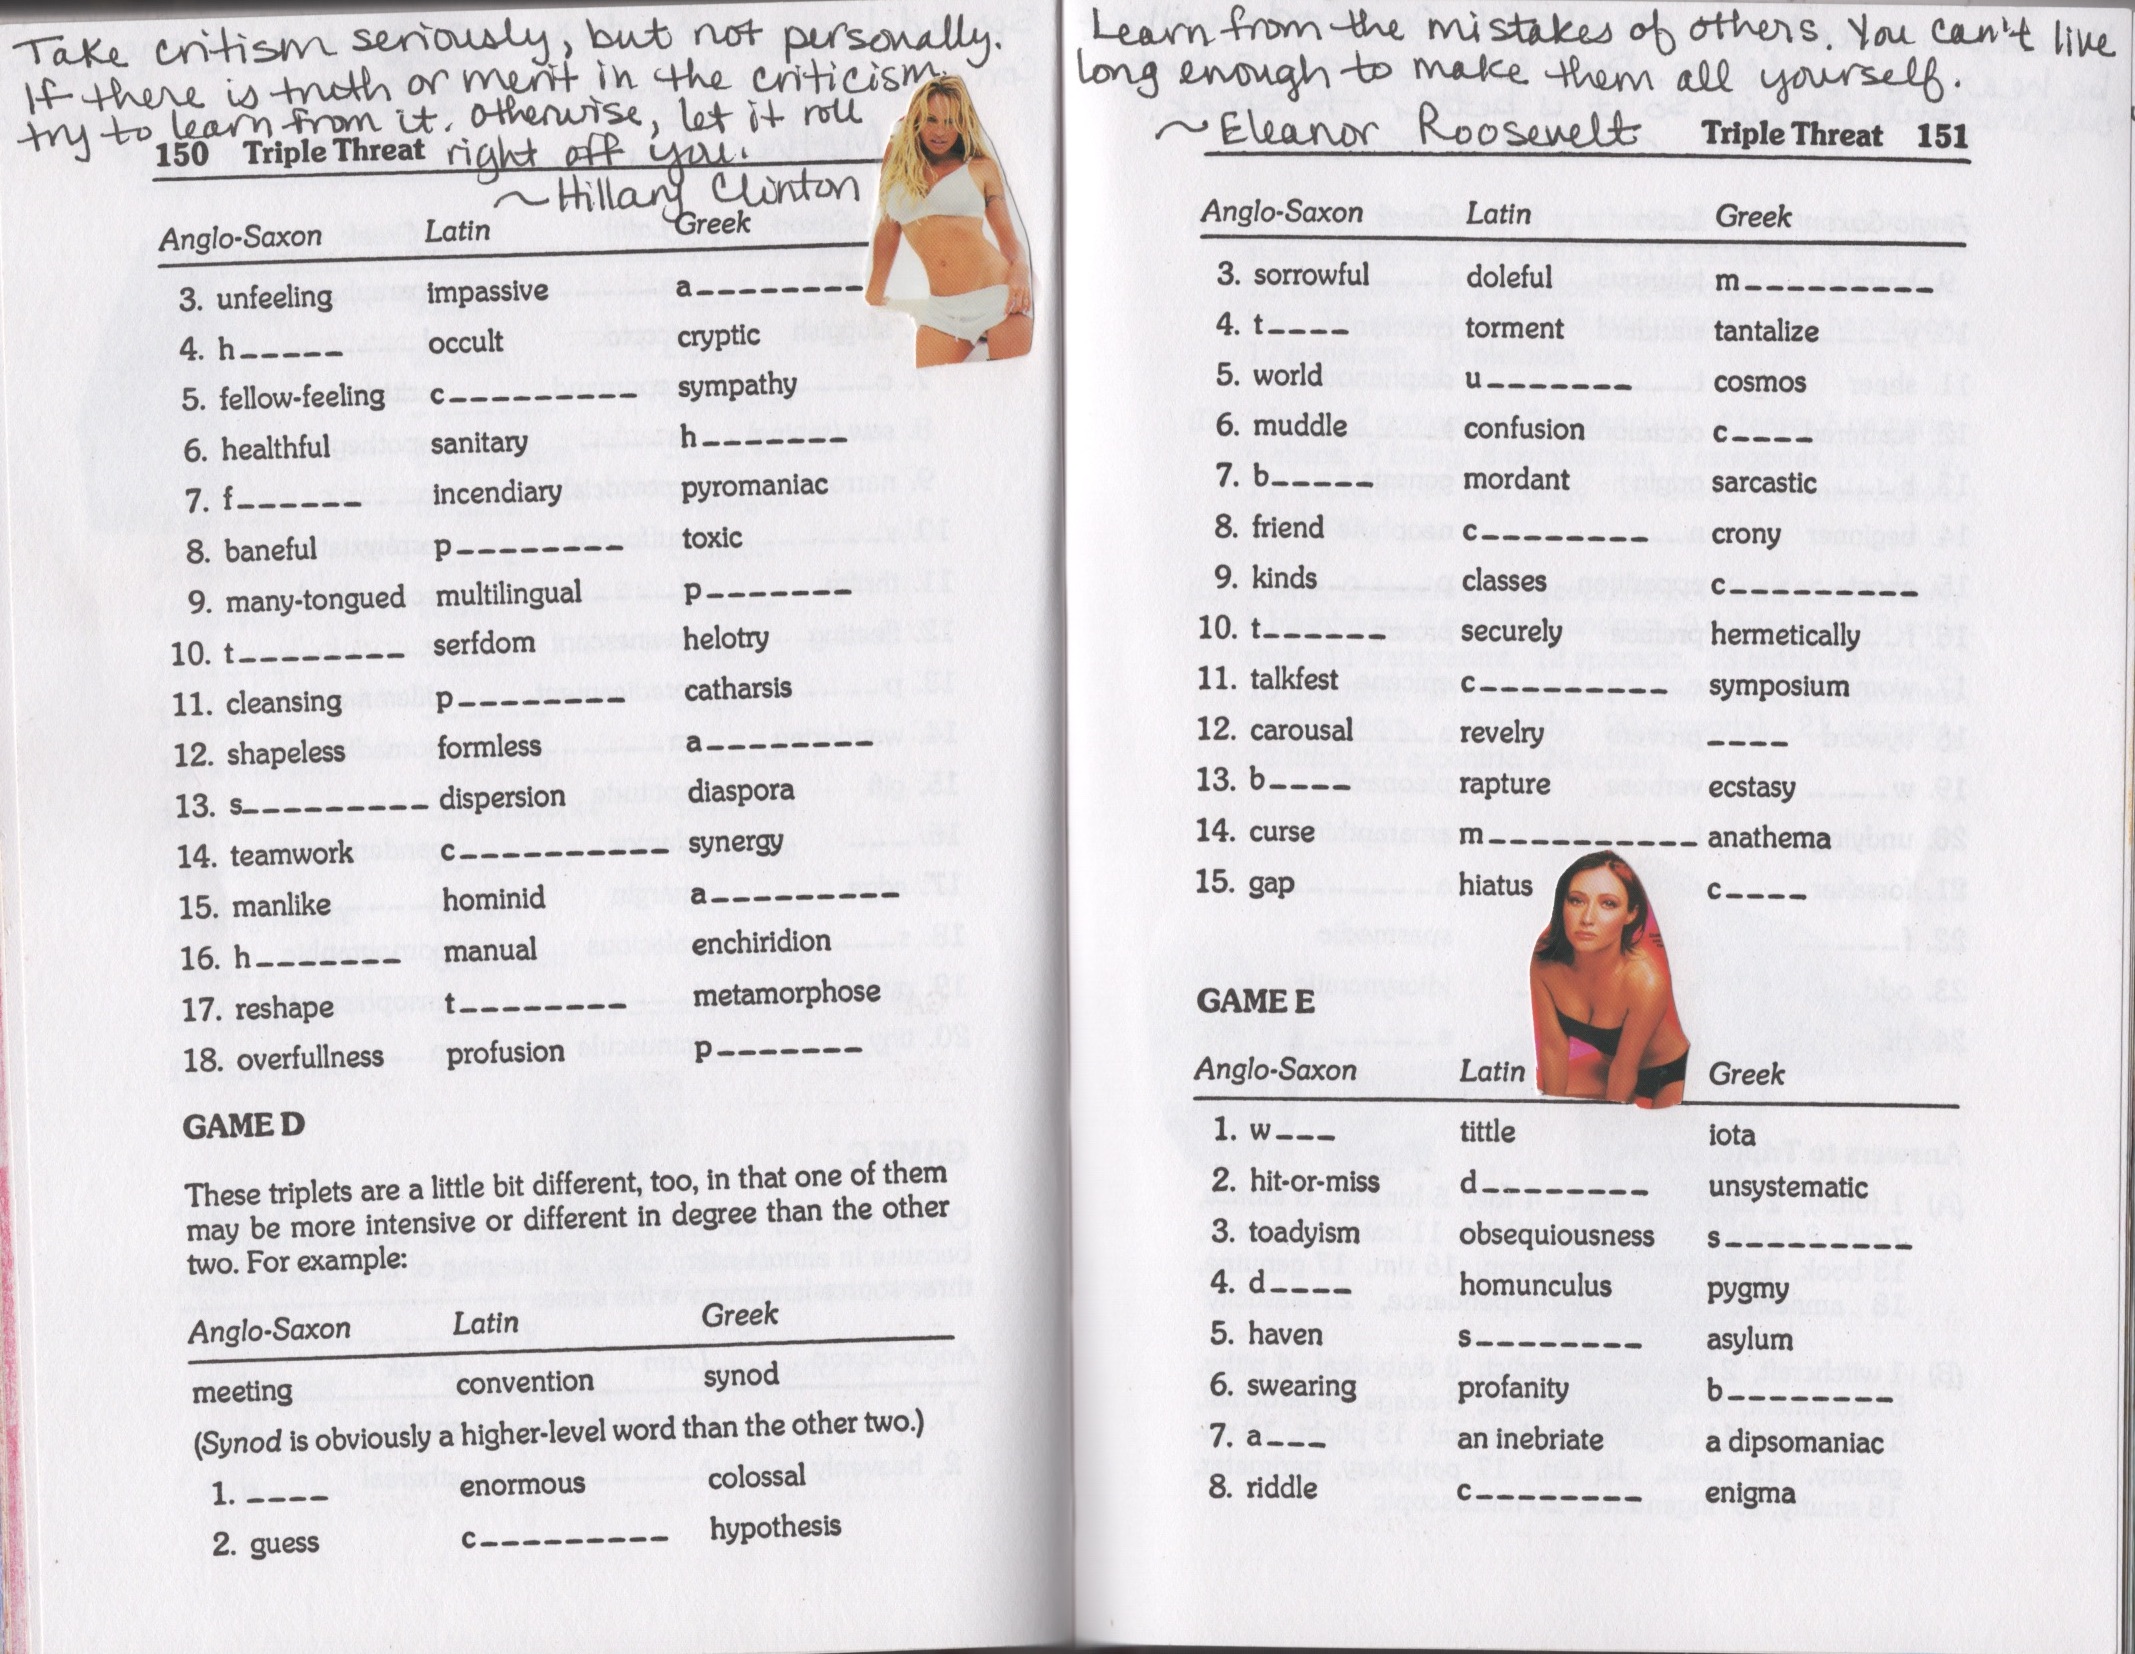 Take critism seriously, but not personally.
If there is truth or merit in the criticism,
try to learn from it. Otherwise, let it roll
right off you.
~Hillary Clinton
150 Triple Threat
Anglo-Saxon Latin Greek
3. unfeeling impassive a_________
4. h_____ occult cryptic
5. fellow-feeling c_________ sympathy
6. healthful sanitary h_______
7. f______ incendiary pyromaniac
8. baneful p________ toxic
9. many-tongued multilingual p_______
10. t________ serfdom helotry
11. cleansing p________ catharsis
12. shapeless formless a________
13. s_________ dispersion diaspora
14. teamwork c___________ synergy
15. manlike hominid a_________
16. h_______ manual enchiridion
17. reshape t________ metamorphose
18. overfullness profusion p_______
GAME D
These triplets are a little bit different, too, in that one of them
may be more intensive or different in degree than the other
two. For example:
Anglo-Saxon Latin Greek
meeting convention synod
(Synod is obviously a higher-level word than the other two.)
1. ____ enormous colossal
2. guess c_________ hypothesis
Learn from the mistakes of others. You can't live
long enough to make them all yourself.
~Eleanor Roosevelt
Triple Threat 151
Anglo-Saxon Latin Greek
3. sorrowful doleful m_________
4. t____ torment tantalize
5. world u_______ cosmos
6. muddle confusion c____
7. b_____ mordant sarcastic
8. friend c________ crony
9. kinds classes c_________
10. t______ securely hermetically
11. talkfest c_________ symposium
12. carousal revelry ____
13. b____ rapture ecstasy
14. curse m__________ anathema
15. gap hiatus c____
GAME E
Anglo-Saxon Latin Greek
1. w___ tittle iota
2. hit-or-miss d________ unsystematic
3. toadyism obsequiousness s_________
4. d____ homunculus pygmy
5. haven s________ asylum
6. swearing profanity b________
7. a___ an inebriate a dipsomaniac
8. riddle c________ enigma